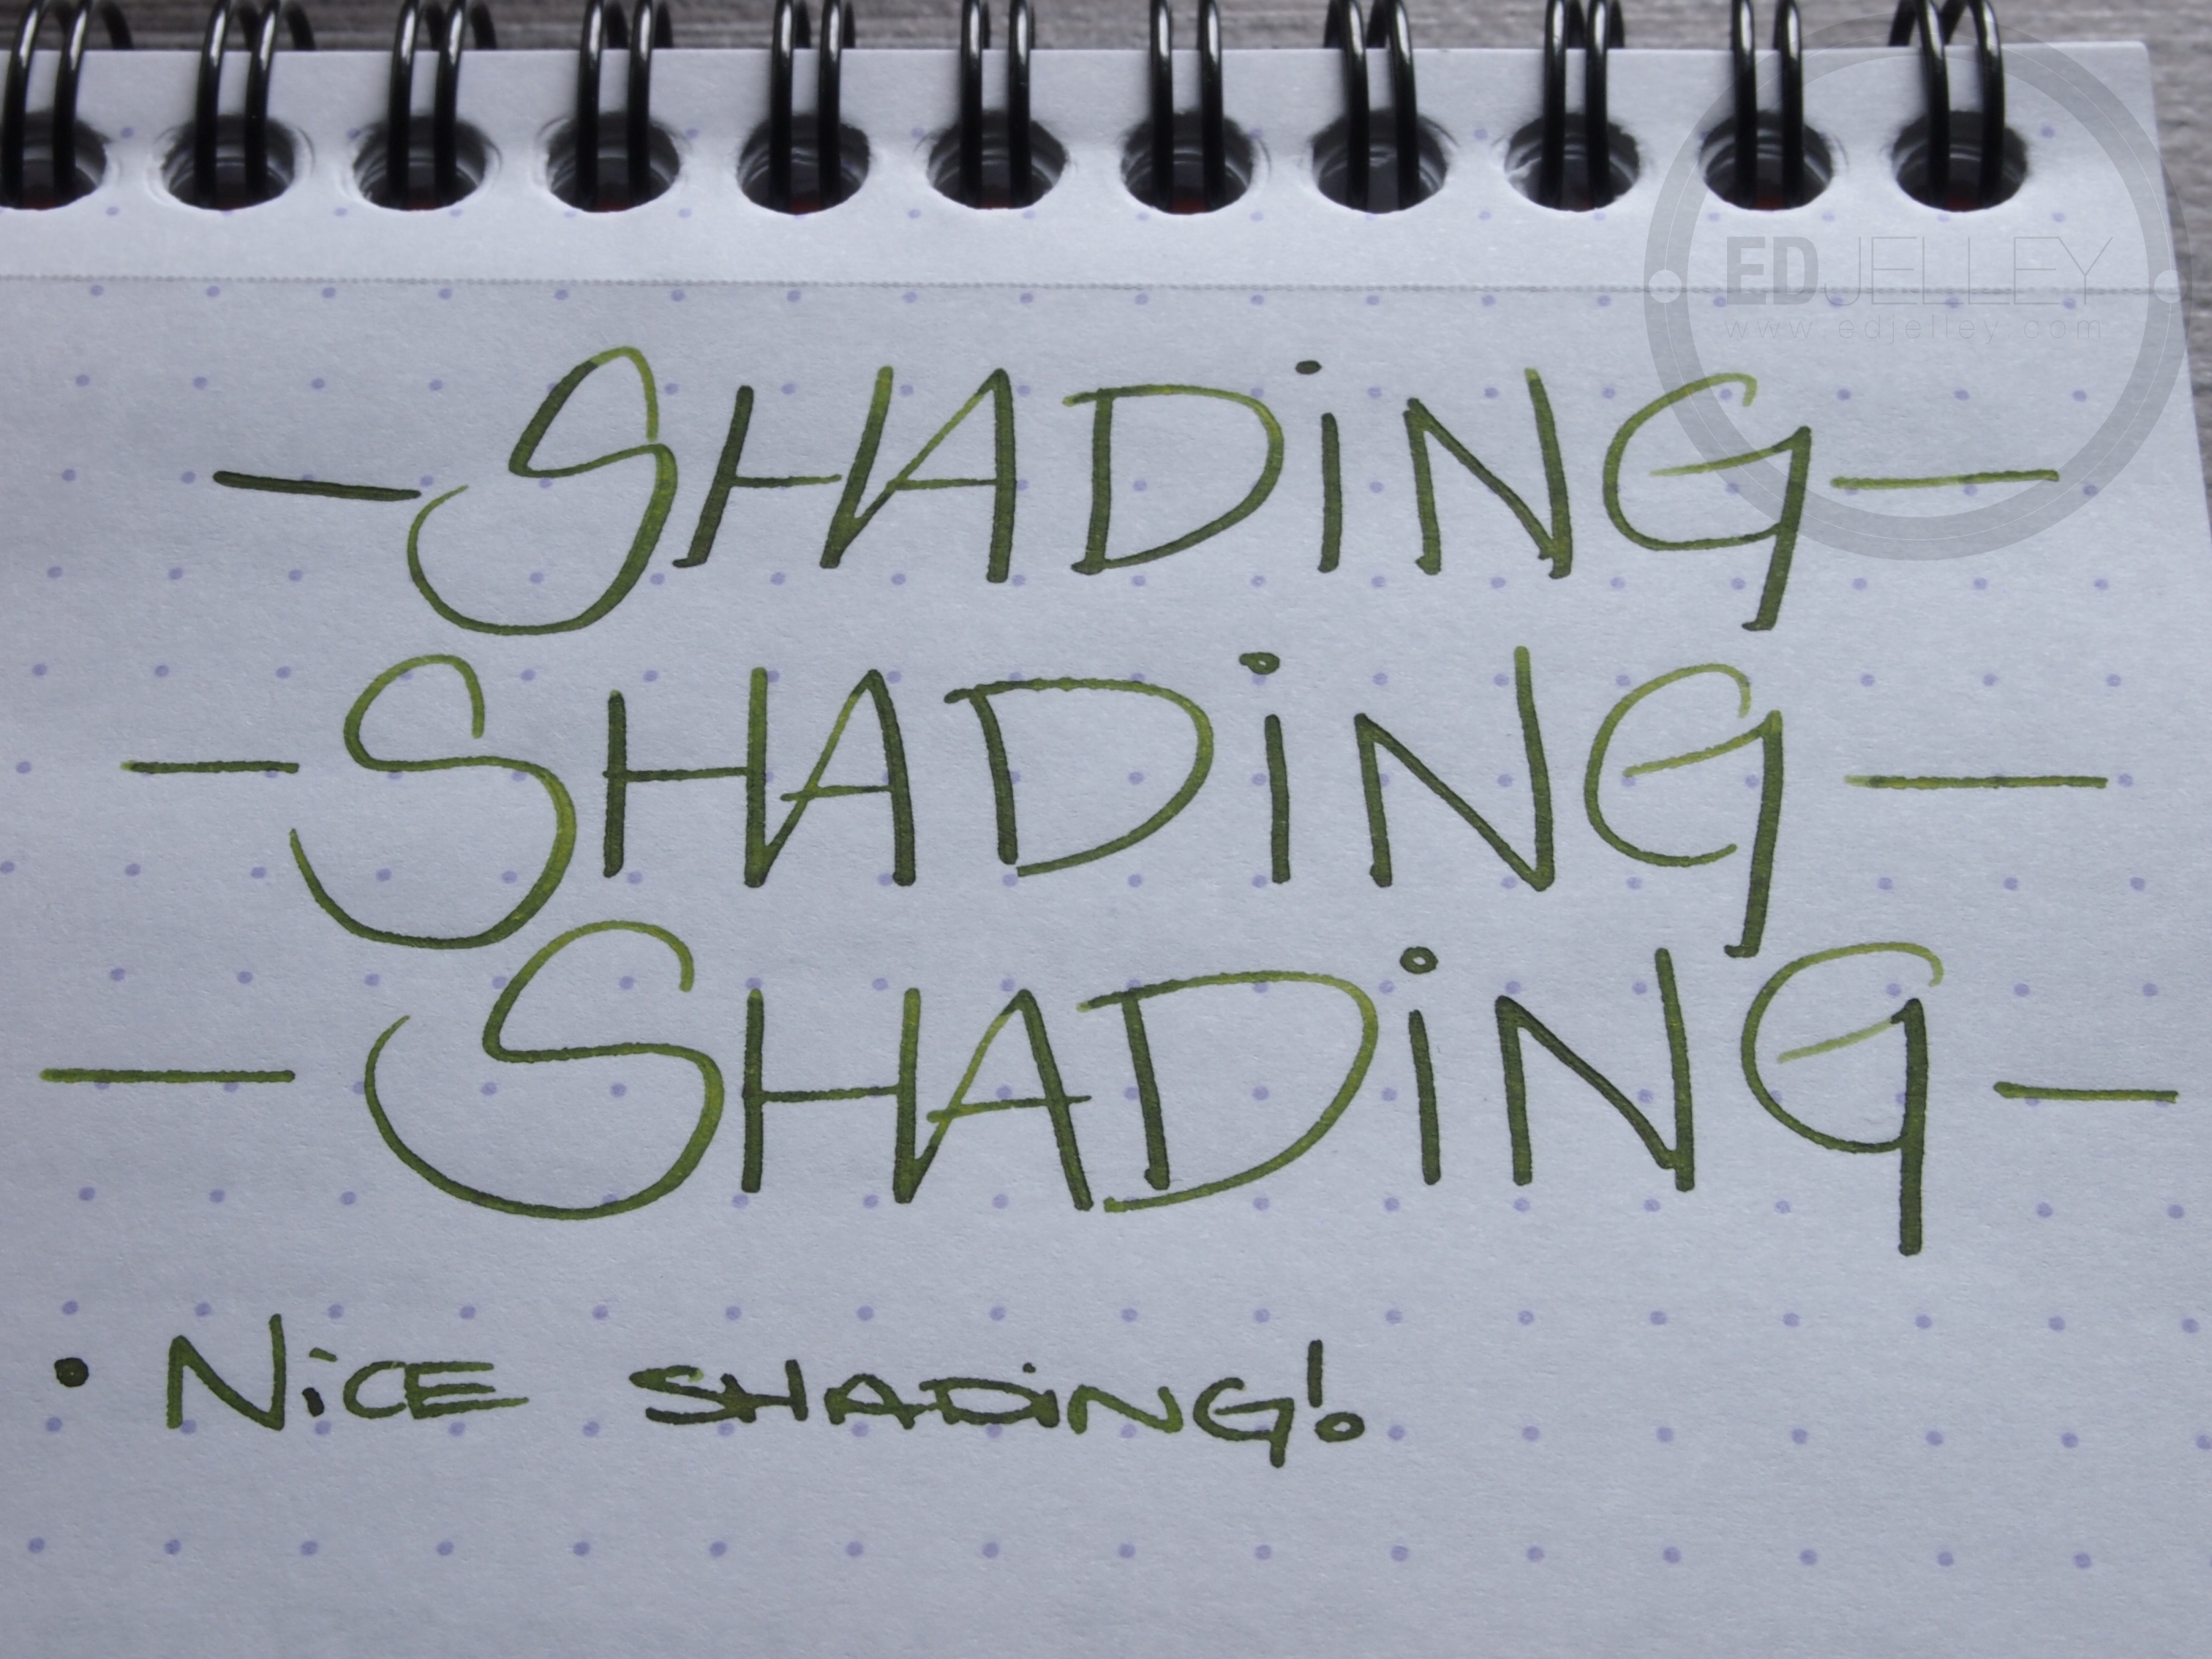 EDJELLEY
www.edjelley.com
- SHADiNG -
- SHADiNG -
- SHADiNG -
• NiCE SHADiNG!